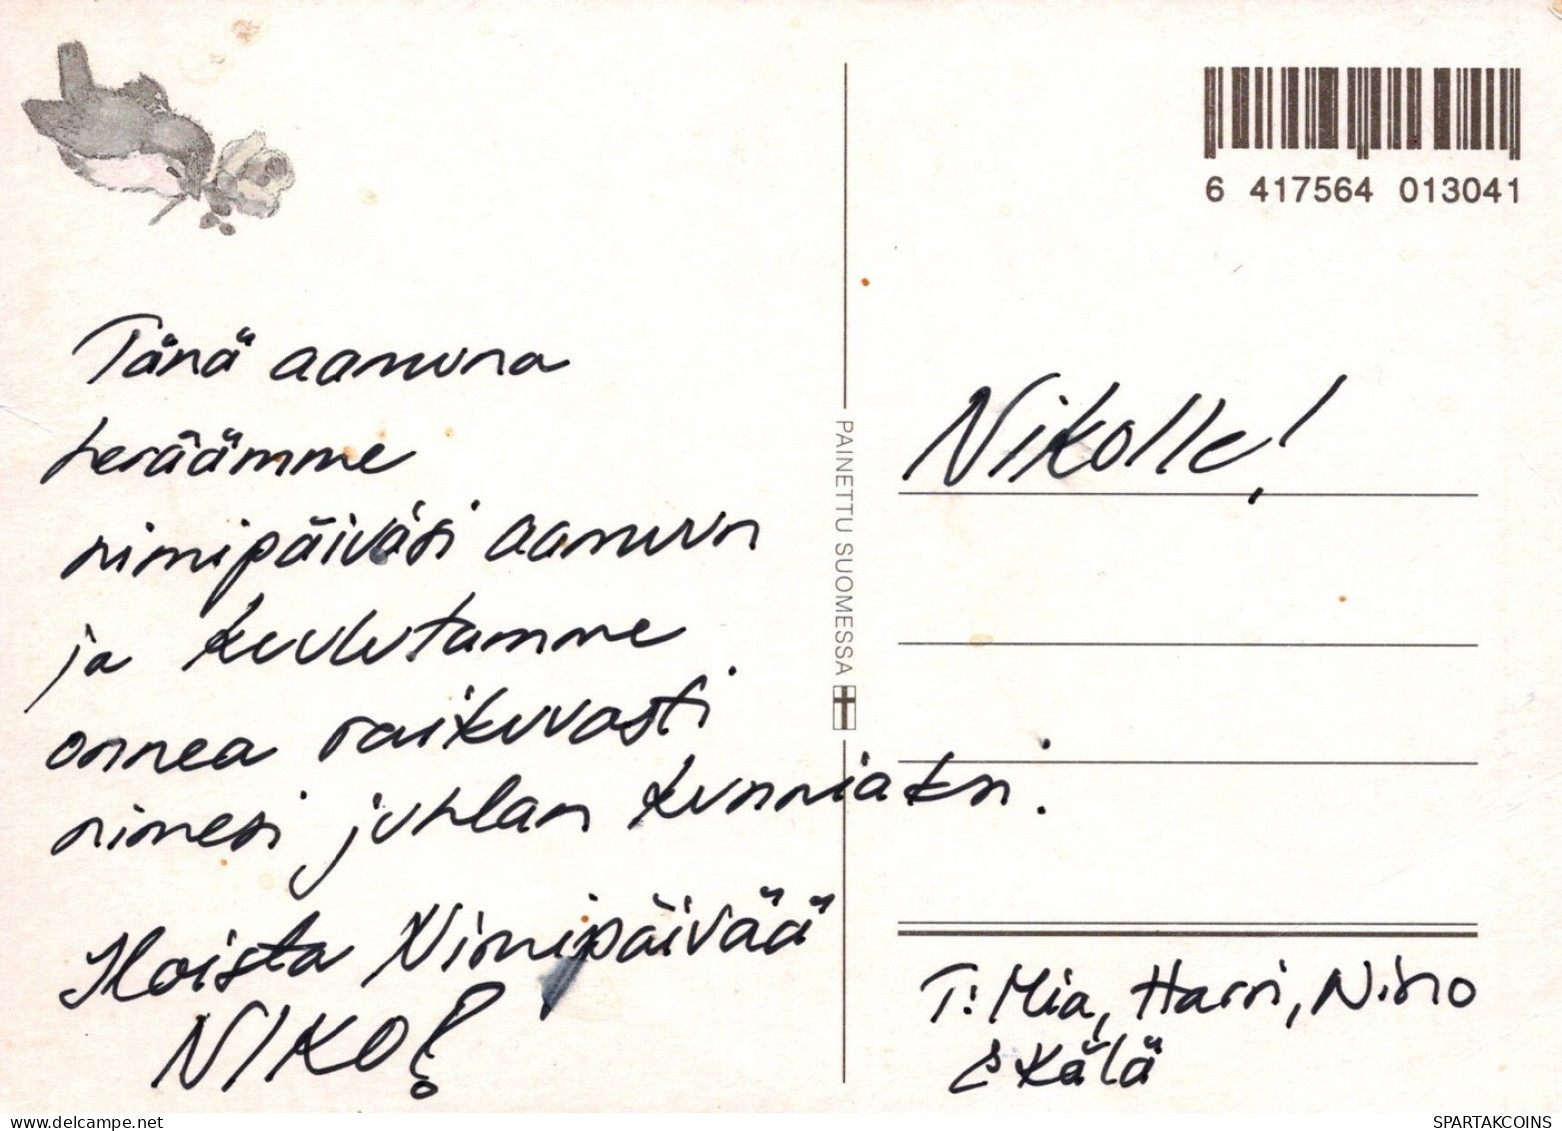 6 417564 013041
Tänä aamuna
heräämme
nimipäiväsi aamuun
ja kuulutamme
onnea raikuvasti
nimesi juhlan kunniaksi.
Iloista Nimipäivää
NIKO!
PAINETTU SUOMESSA
Nikolle!
T: Mia, Harri, Nino
& Kälä
SPARTAKCOINS
www.delcampe.net